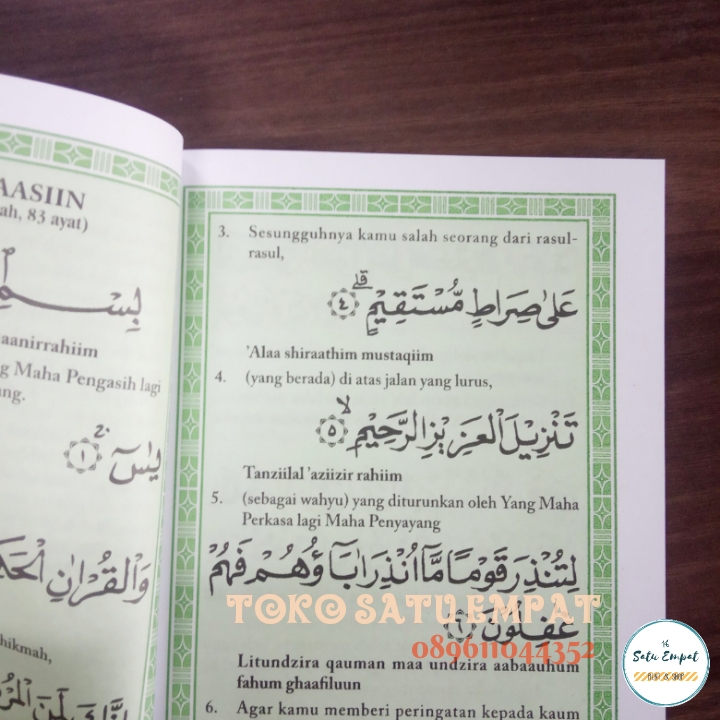 AASIIN
ah, 83 ayat)
بِسْمِ
aanirrahiim
g Maha Pengasih lagi
ng.
يٰسۤ ۚ ١
وَالْقُرْاٰنِ
hikmah,
اِنَّكَ لَمِنَ
3. Sesungguhnya kamu salah seorang dari rasul-
rasul,
عَلٰى صِرَاطٍ مُّسْتَقِيْمٍ ۗ ٤
'Alaa shiraathim mustaqiim
4. (yang berada) di atas jalan yang lurus,
تَنْزِيْلَ الْعَزِيْزِ الرَّحِيْمِ ۙ ٥
Tanziilal 'aziizir rahiim
5. (sebagai wahyu) yang diturunkan oleh Yang Maha
Perkasa lagi Maha Penyayang
لِتُنْذِرَ قَوْمًا مَّآ اُنْذِرَ اٰبَاۤؤُهُمْ فَهُمْ
غٰفِلُوْنَ ٦
TOKO SATU EMPAT
089611044352
Litundzira qauman maa undzira aabaauhum
fahum ghaafiluun
6. Agar kamu memberi peringatan kepada kaum
14
Satu Empat